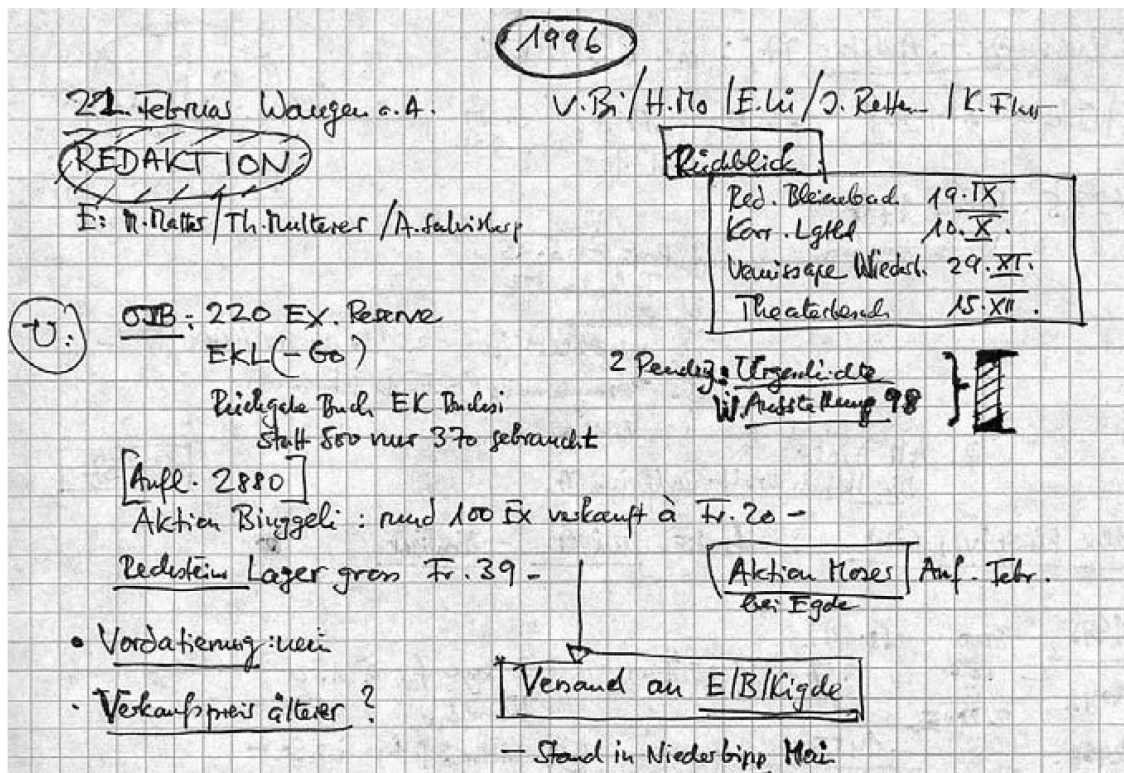 1996
22. Februar Wangen a. A. V. Bi / H. Mo / E. Li / J. Retten / K. Flur
REDAKTION
E: M. Matter / Th. Multerer / A. Salvisberg
Rückblick:
Red. Bleienbach 19. IX
Korr. Lgthl 10. X.
Vernissage Wiedl. 29. XI.
Theaterbesuch 15. XII.
U: OJB: 220 Ex. Reserve
EKL (-60)
Rückgabe Buch EK Buchsi
statt 500 nur 370 gebraucht
2 Urgeschichte
Ausstellung 98
[Aufl. 2880]
Aktion Binggeli: rund 100 Ex verkauft à Fr. 20 -
Lager gross Fr. 39 -
Aktion Moser Anf. Febr.
bei Egde
• Vordatierung: nein
• Verkaufspreis älterer?
* Versand an E/B/Kigde
- Stand in Niederbipp Mai